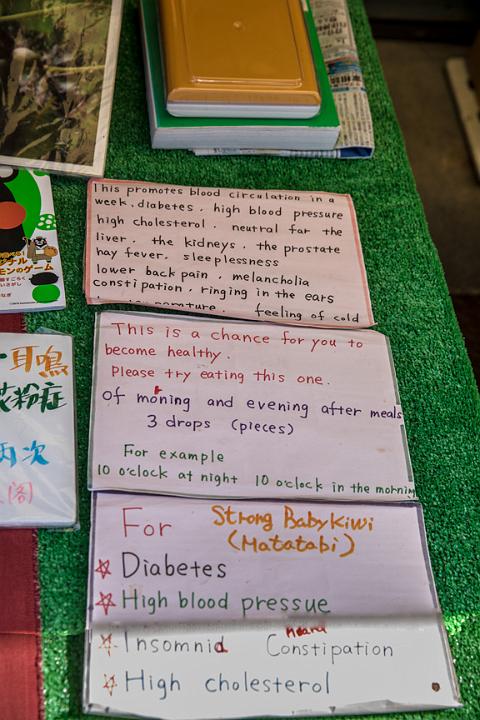 This promotes blood circulation in a
week. diabetes. high blood pressure
high cholesterol. neutral far the
liver. the kidneys. the prostate
hay fever. sleeplessness
lower back pain. melancholia
constipation. ringing in the ears
feeling of cold
This is a chance for you to
become healthy.
Please try eating this one.
Of morning and evening after meals
3 drops (pieces)
For example
10 o'clock at night 10 o'clock in the morning
For Strong Babykiwi
(Matatabi)
Diabetes
High blood pressue
Insomnid Heard Constipation
High cholesterol
耳鳴
花粉症
两次